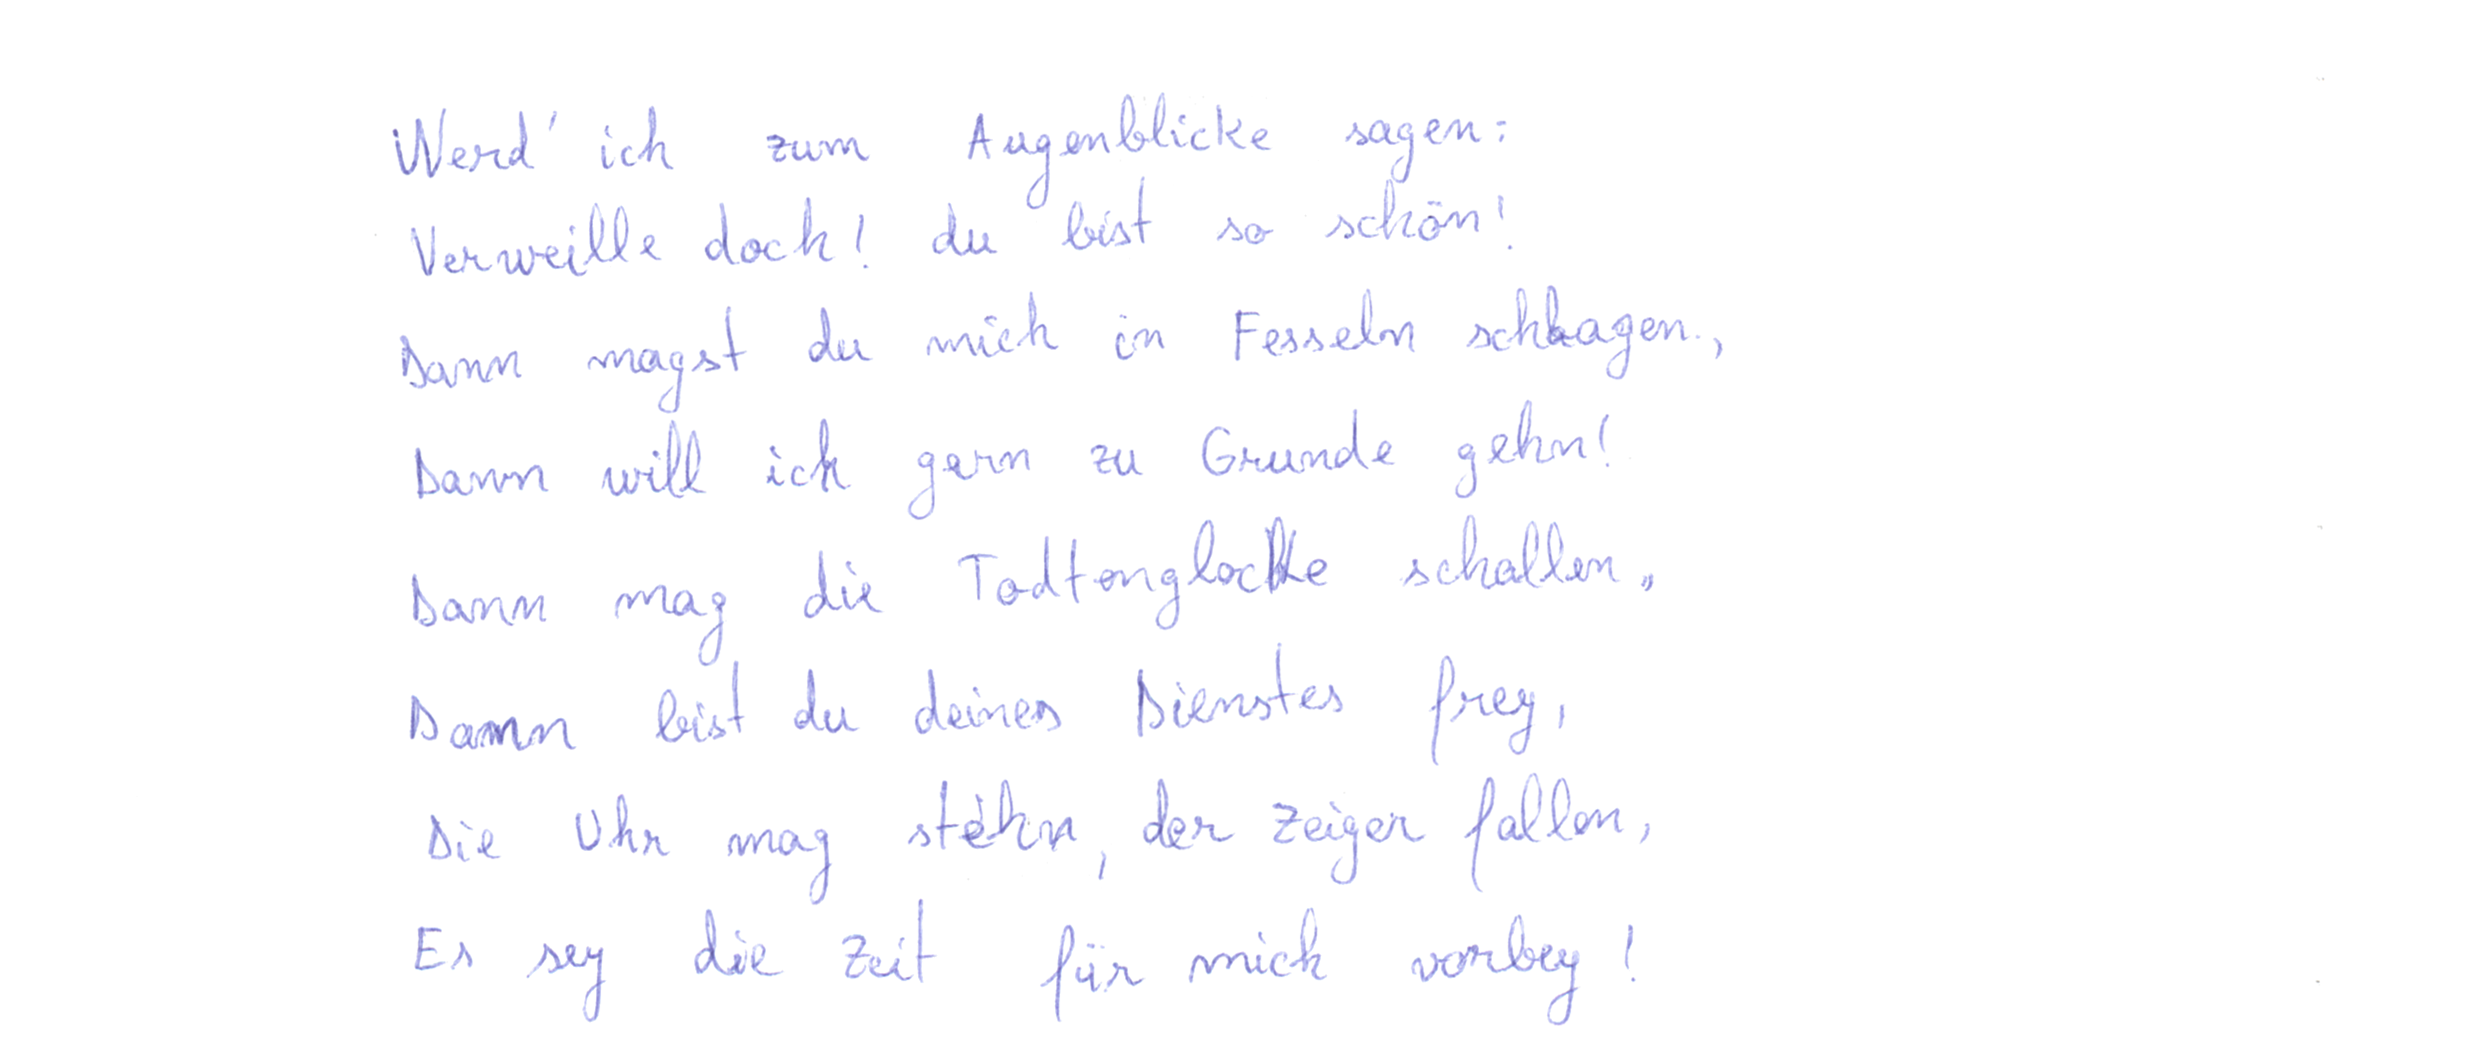 Werd' ich zum Augenblicke sagen:
Verweille doch! du bist so schön!
Dann magst du mich in Fesseln schlagen,
Dann will ich gern zu Grunde gehn!
Dann mag die Todtenglocke schallen,
Dann bist du deines Dienstes frey,
Die Uhr mag stehn, der Zeiger fallen,
Es sey die Zeit für mich vorbey!